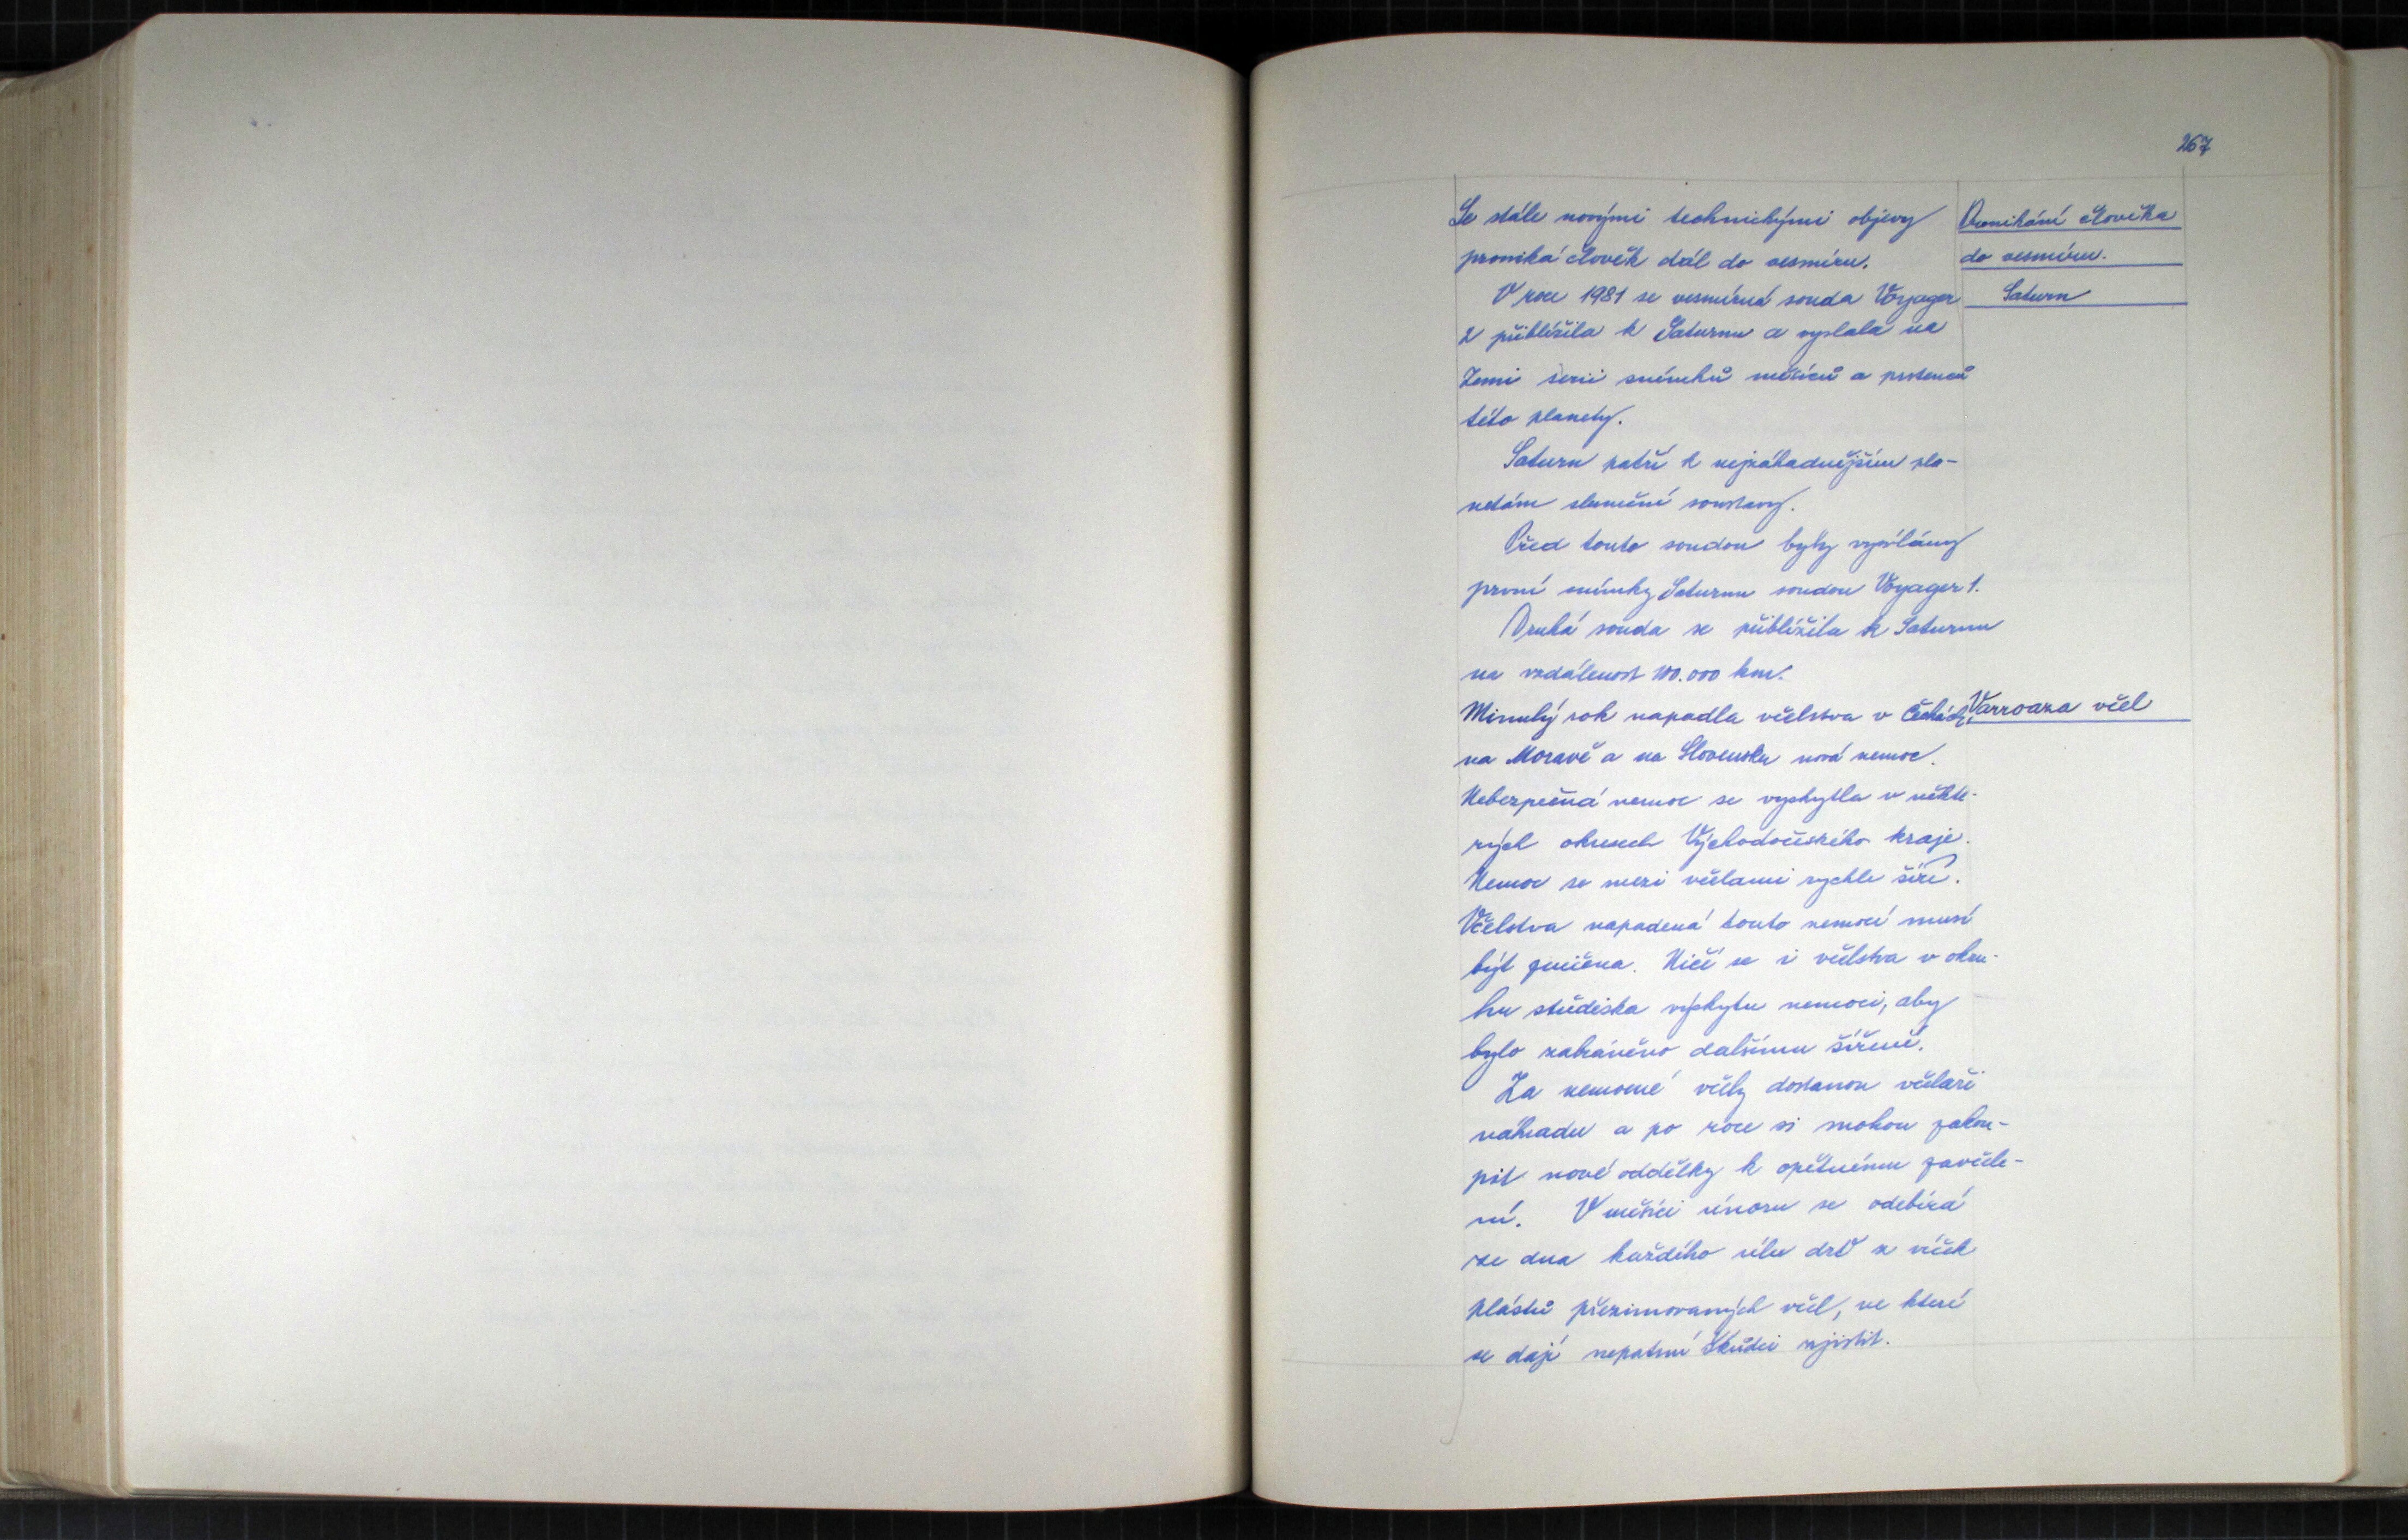 267
Se stále novými technickými objevy
proniká člověk dál do vesmíru.
Pronikání člověka
do vesmíru.
Saturn
V roce 1981 se vesmírná sonda Voyager
2 přiblížila k Saturnu a vyslala na
Zemi serii snímků měsíců a prstenců
této planety.
Saturn patří k nejzáhadnějším pla-
netám sluneční soustavy.
Před touto sondou byly vysílány
první snímky Saturnu sondou Voyager 1.
Druhá sonda se přiblížila k Saturnu
na vzdálenost 100.000 km.
Minulý rok napadla včelstva v Čechách,
Varroaza včel
na Moravě a na Slovensku nová nemoc.
Nebezpečná nemoc se vyskytla v někte-
rých okresech Východočeského kraje.
Nemoc se mezi včelami rychle šíří.
Včelstva napadená touto nemocí musí
být zničena. Ničí se i včelstva v okru-
hu střediska výskytu nemoci, aby
bylo zabráněno dalšímu šíření.
Za nemocné včely dostanou včelaři
náhradu a po roce si mohou zakou-
pit nové oddělky k opětnému zavčele-
ní. V měsíci únoru se odebírá
ze dna každého úlu drť z víček
plástů přezimovaných včel, ve které
se dají nepatrní škůdci zjistit.